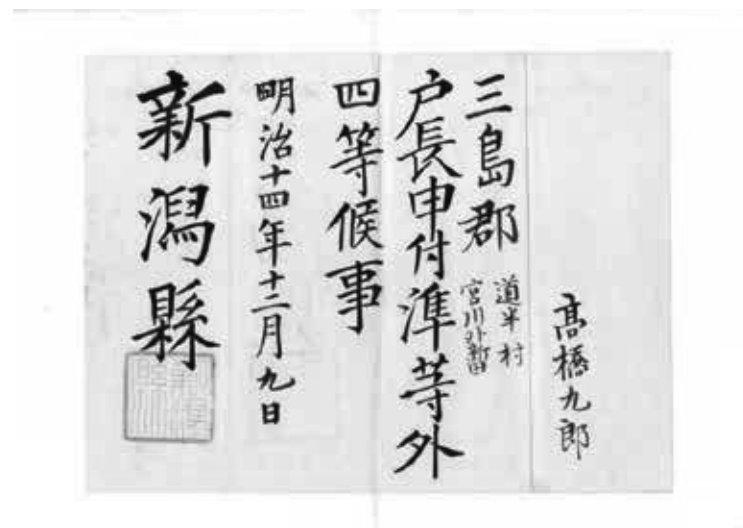 高橋九郎
三島郡
道半村
宮川外新田
戸長申付準等外
四等候事
明治十四年十二月九日
新潟縣